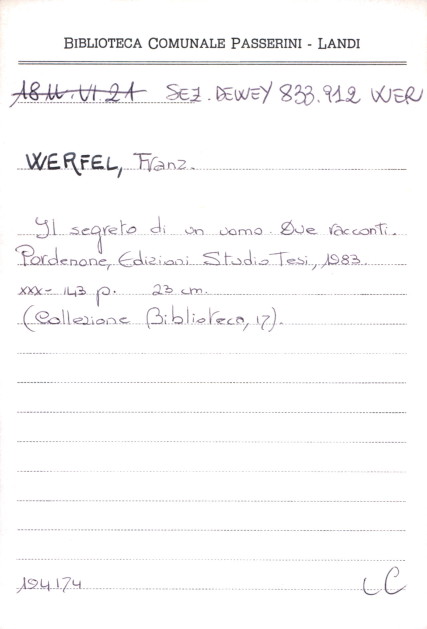 BIBLIOTECA COMUNALE PASSERINI - LANDI
18 M. VI. 21 SEZ. DEWEY 833.912 WER
WERFEL, Franz.
Il segreto di un uomo. Due racconti.
Pordenone, Edizioni Studio Tesi, 1983.
xxx- 143 p. 23 cm.
(Collezione Biblioteca, 17).
194174
LC